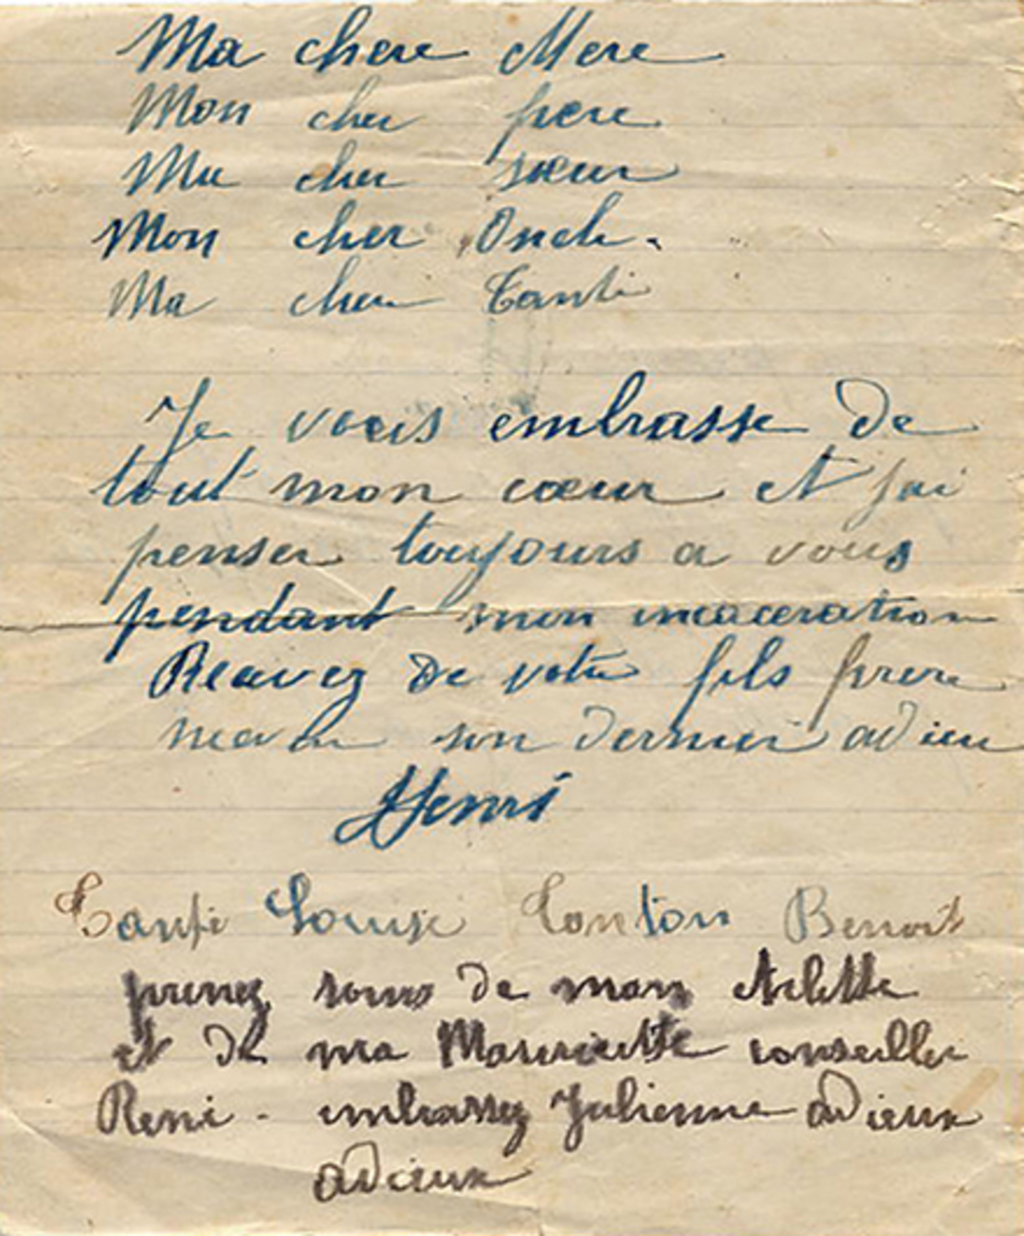 Ma chere Mere
Mon cher pere
Ma cher sœur
Mon cher Oncle.
Ma cher Tante
Je vous embrasse de
tout mon cœur et jai
penser toujours a vous
pendant mon incaceration
Recevez de votre fils frere
neveu son dernier adieu
Henri
Tante Louise Tonton Benoit
prenez soins de mon Arlette
et de ma Mauricette conseiller
René - embrassez Julienne adieux
adieux